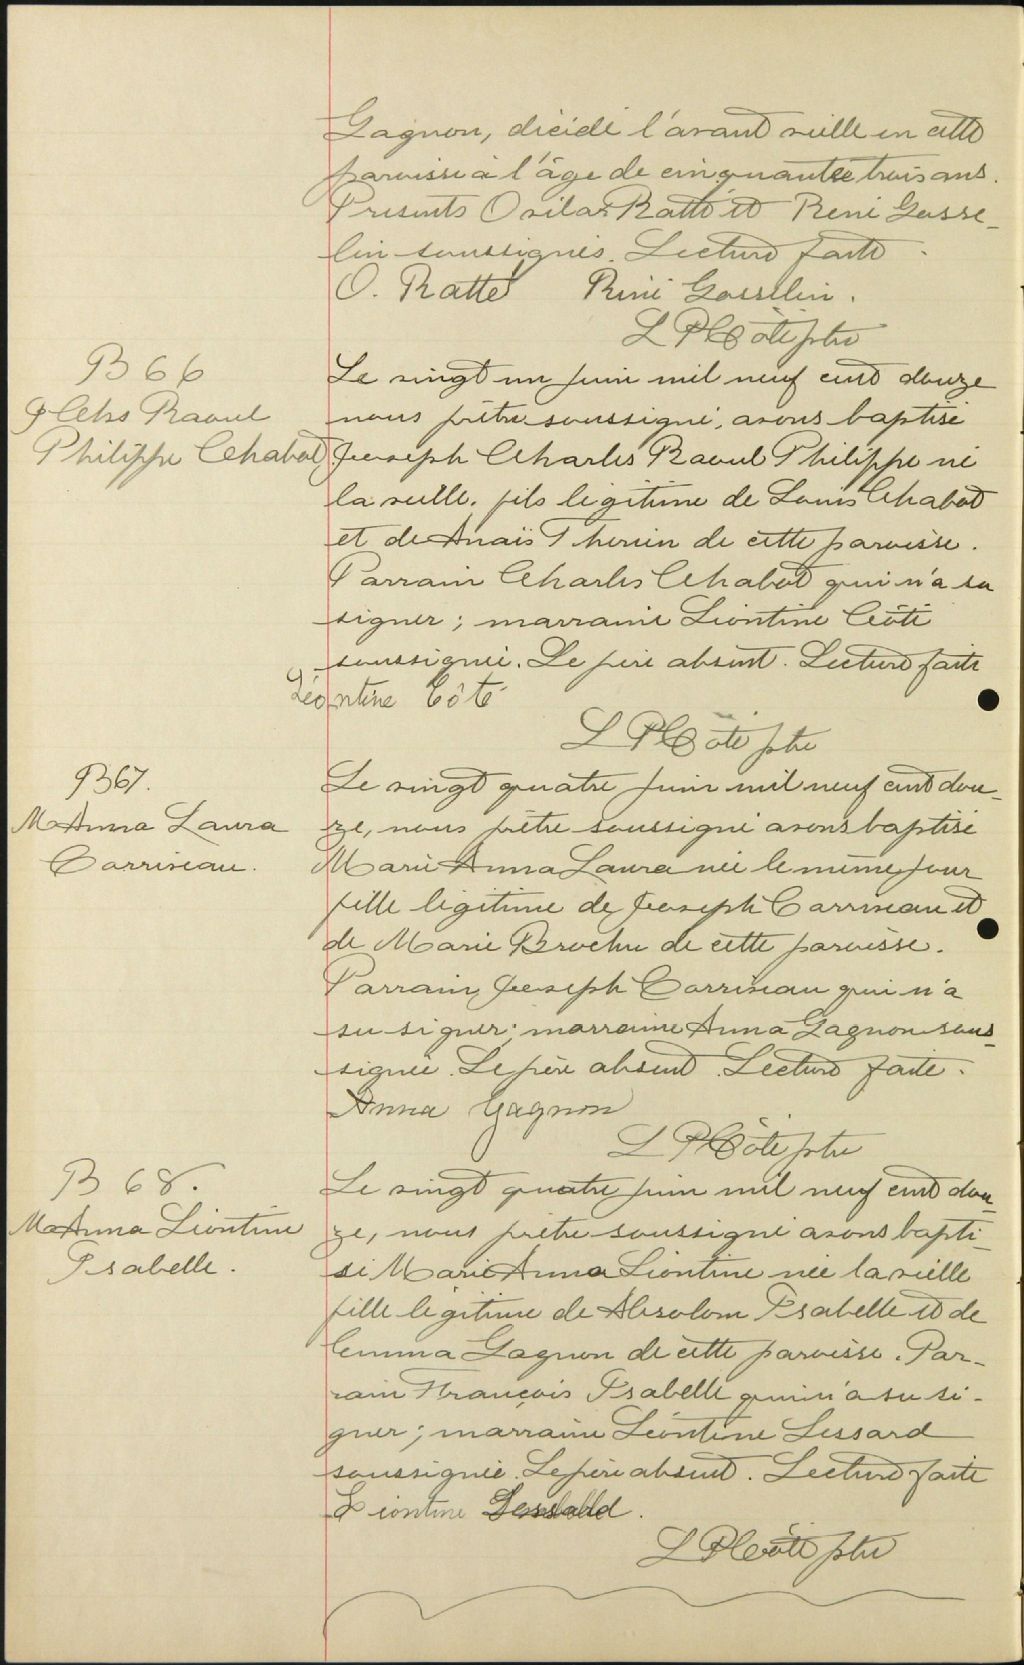 Gagnon, décédé l'avant veille en cette
paroisse à l'âge de cinquante trois ans.
Présents Ovilas Ratté et René Gosse-
lin soussignés. Lecture faite.
O. Ratté René Gosselin.
L P Côté ptre
B 66
J Chs Raoul
Philippe Chabot
Le vingt un juin mil neuf cent douze
nous prêtre soussigné, avons baptisé
Joseph Charles Raoul Philippe né
la veille, fils légitime de Louis Chabot
et de Anaïs Therien de cette paroisse.
Parrain Charles Chabot qui n'a su
signer; marraine Léontine Côté
soussignée. Le père absent. Lecture faite
Léontine Côté
L P Côté ptre
B 67.
M Anna Laura
Corriveau.
Le vingt quatre juin mil neuf cent dou-
ze, nous prêtre soussigné avons baptisé
Marie Anna Laura née le même jour
fille légitime de Joseph Corriveau et
de Marie Brochu de cette paroisse.
Parrain Joseph Corriveau qui n'a
su signer; marraine Anna Gagnon sous-
signée. Le père absent. Lecture faite.
Anna Gagnon
L P Côté ptre
B 68.
M Anna Léontine
Isabelle.
Le vingt quatre juin mil neuf cent dou-
ze, nous prêtre soussigné avons bapti-
sé Marie Anna Léontine née la veille
fille légitime de Absolom Isabelle et de
Emma Gagnon de cette paroisse. Par-
rain François Isabelle qui n'a su si-
gner; marraine Léontine Lessard
soussignée. Le père absent. Lecture faite
Léontine
L P Côté ptre